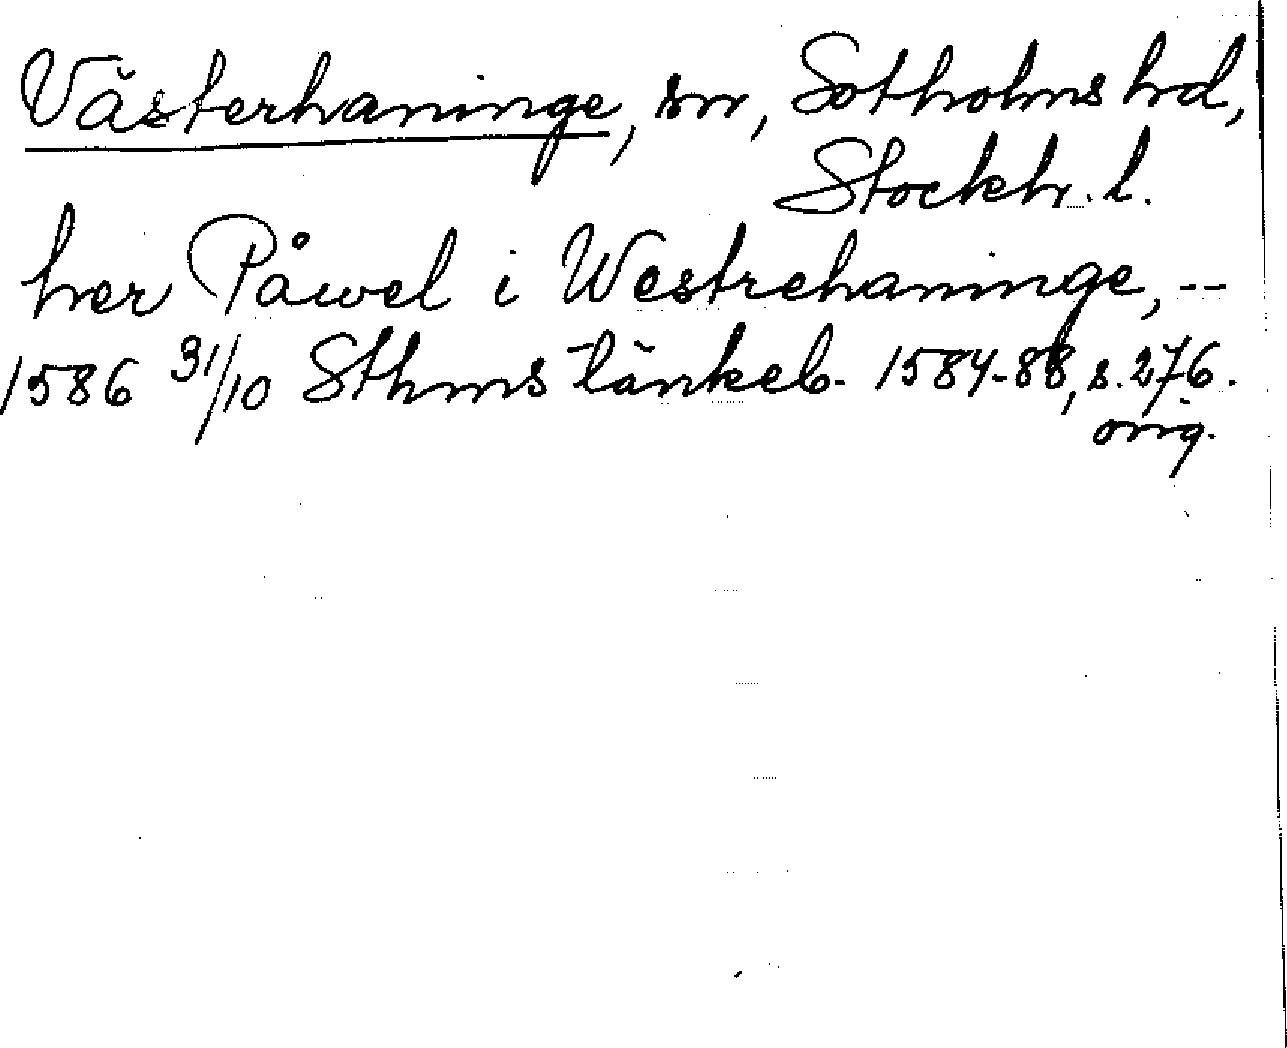 Västerhaninge, sn, Sotholms hd,
Stockh. l.
her Påwel i Westrehaninge, --
1586 31/10 Sthms tänkeb. 1584-88, s. 276.
orig.